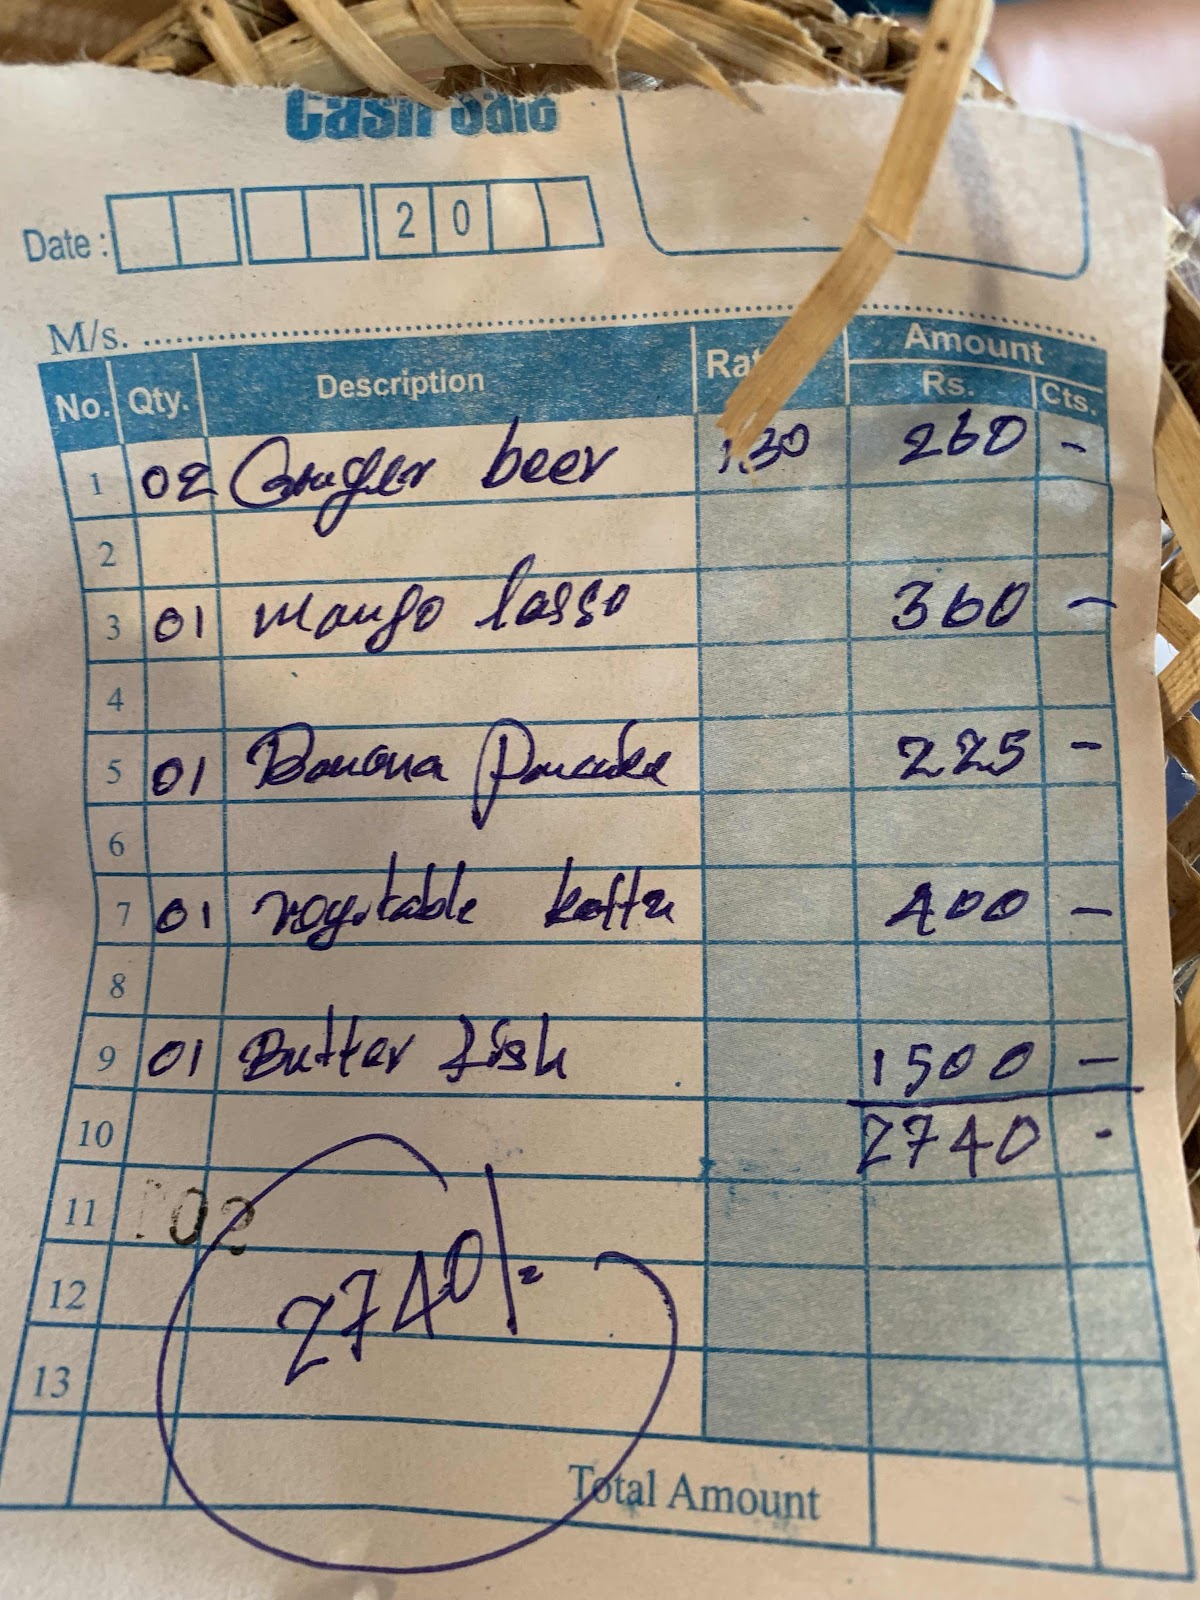 Cash Sale
Date : 2 0
M/s.
No. Qty. Description Rate Amount
Rs. Cts.
1 02 Ginger beer 130 260 -
2
3 01 Mango lasso 360 -
4
5 01 Banana Pancake 225 -
6
7 01 vegetable kottu 400 -
8
9 01 Butter fish 1500 -
10 2740 -
11 02
12 2740/=
13
Total Amount